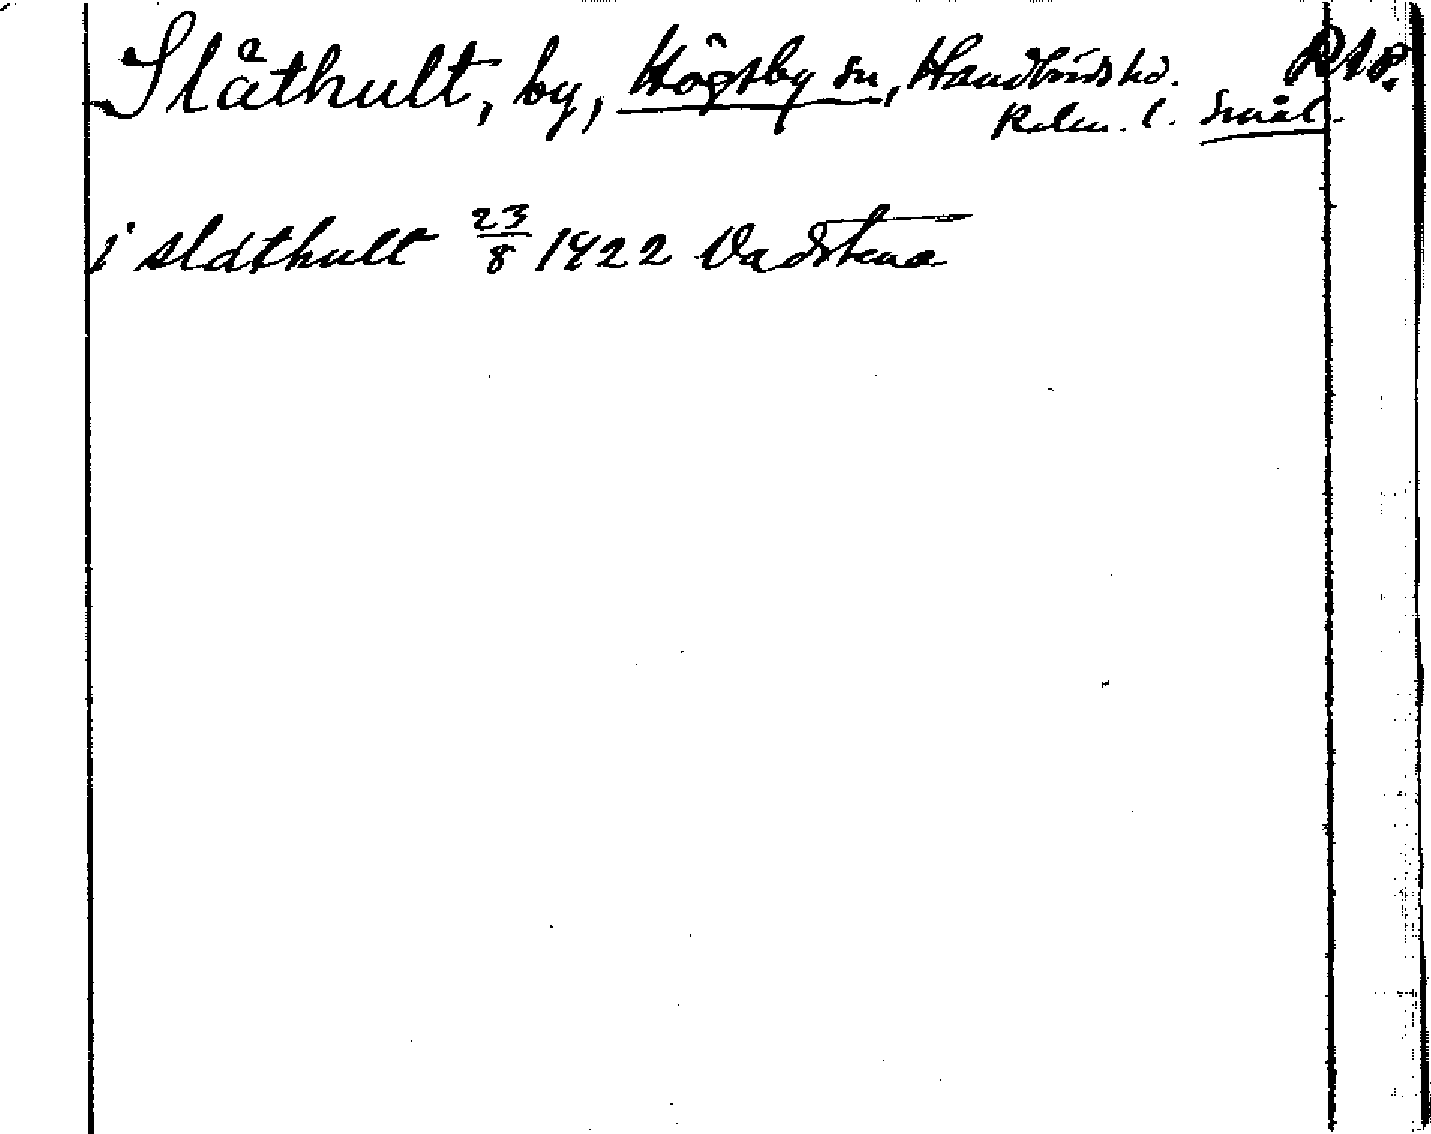 Slåthult, by, Högsby sn, Handbörds hd. RAP.
Kalm. l. Smål.
i slathult 23/8 1422 Vadstena